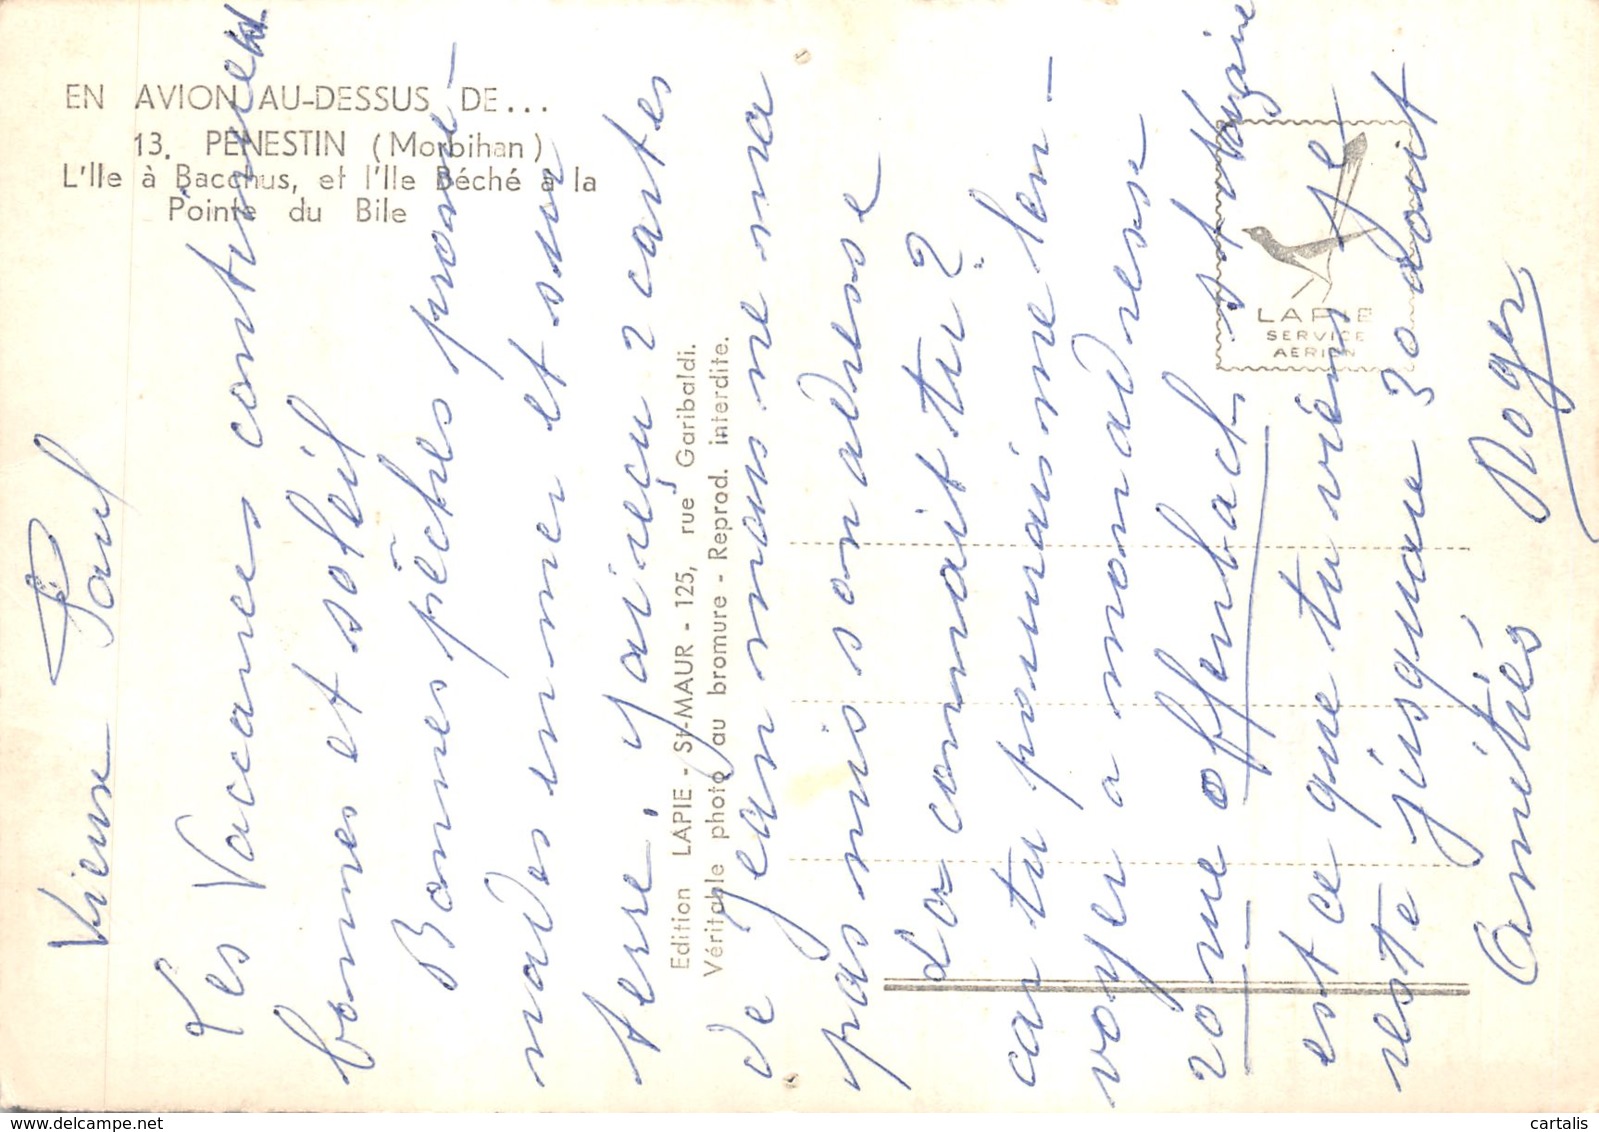 EN AVION AU-DESSUS DE...
13. PENESTIN (Morbihan)
L'Ile à Bacchus, et l'Ile Béché à la
Pointe du Bile
Edition LAPIE - St-MAUR - 125, rue Garibaldi.
Véritable photo au bromure - Reprod. interdite.
LAPIE
SERVICE
AERIEN
Vieux Paul
Les Vaccances continuent
bonnes et soleil
Bonnes pêches prome-
nades en mer et sur
terre. J'ai reçu 2 cartes
de Jean mais ne m'a
pas mis son adresse
la connait tu?
car tu pourrais me l'en-
voyer a mon adresse
20 rue offenbach St Nazaire
est ce que tu viens je
reste jusqu'au 30 aout
Amitiés Roger
www.delcampe.net
cartalis